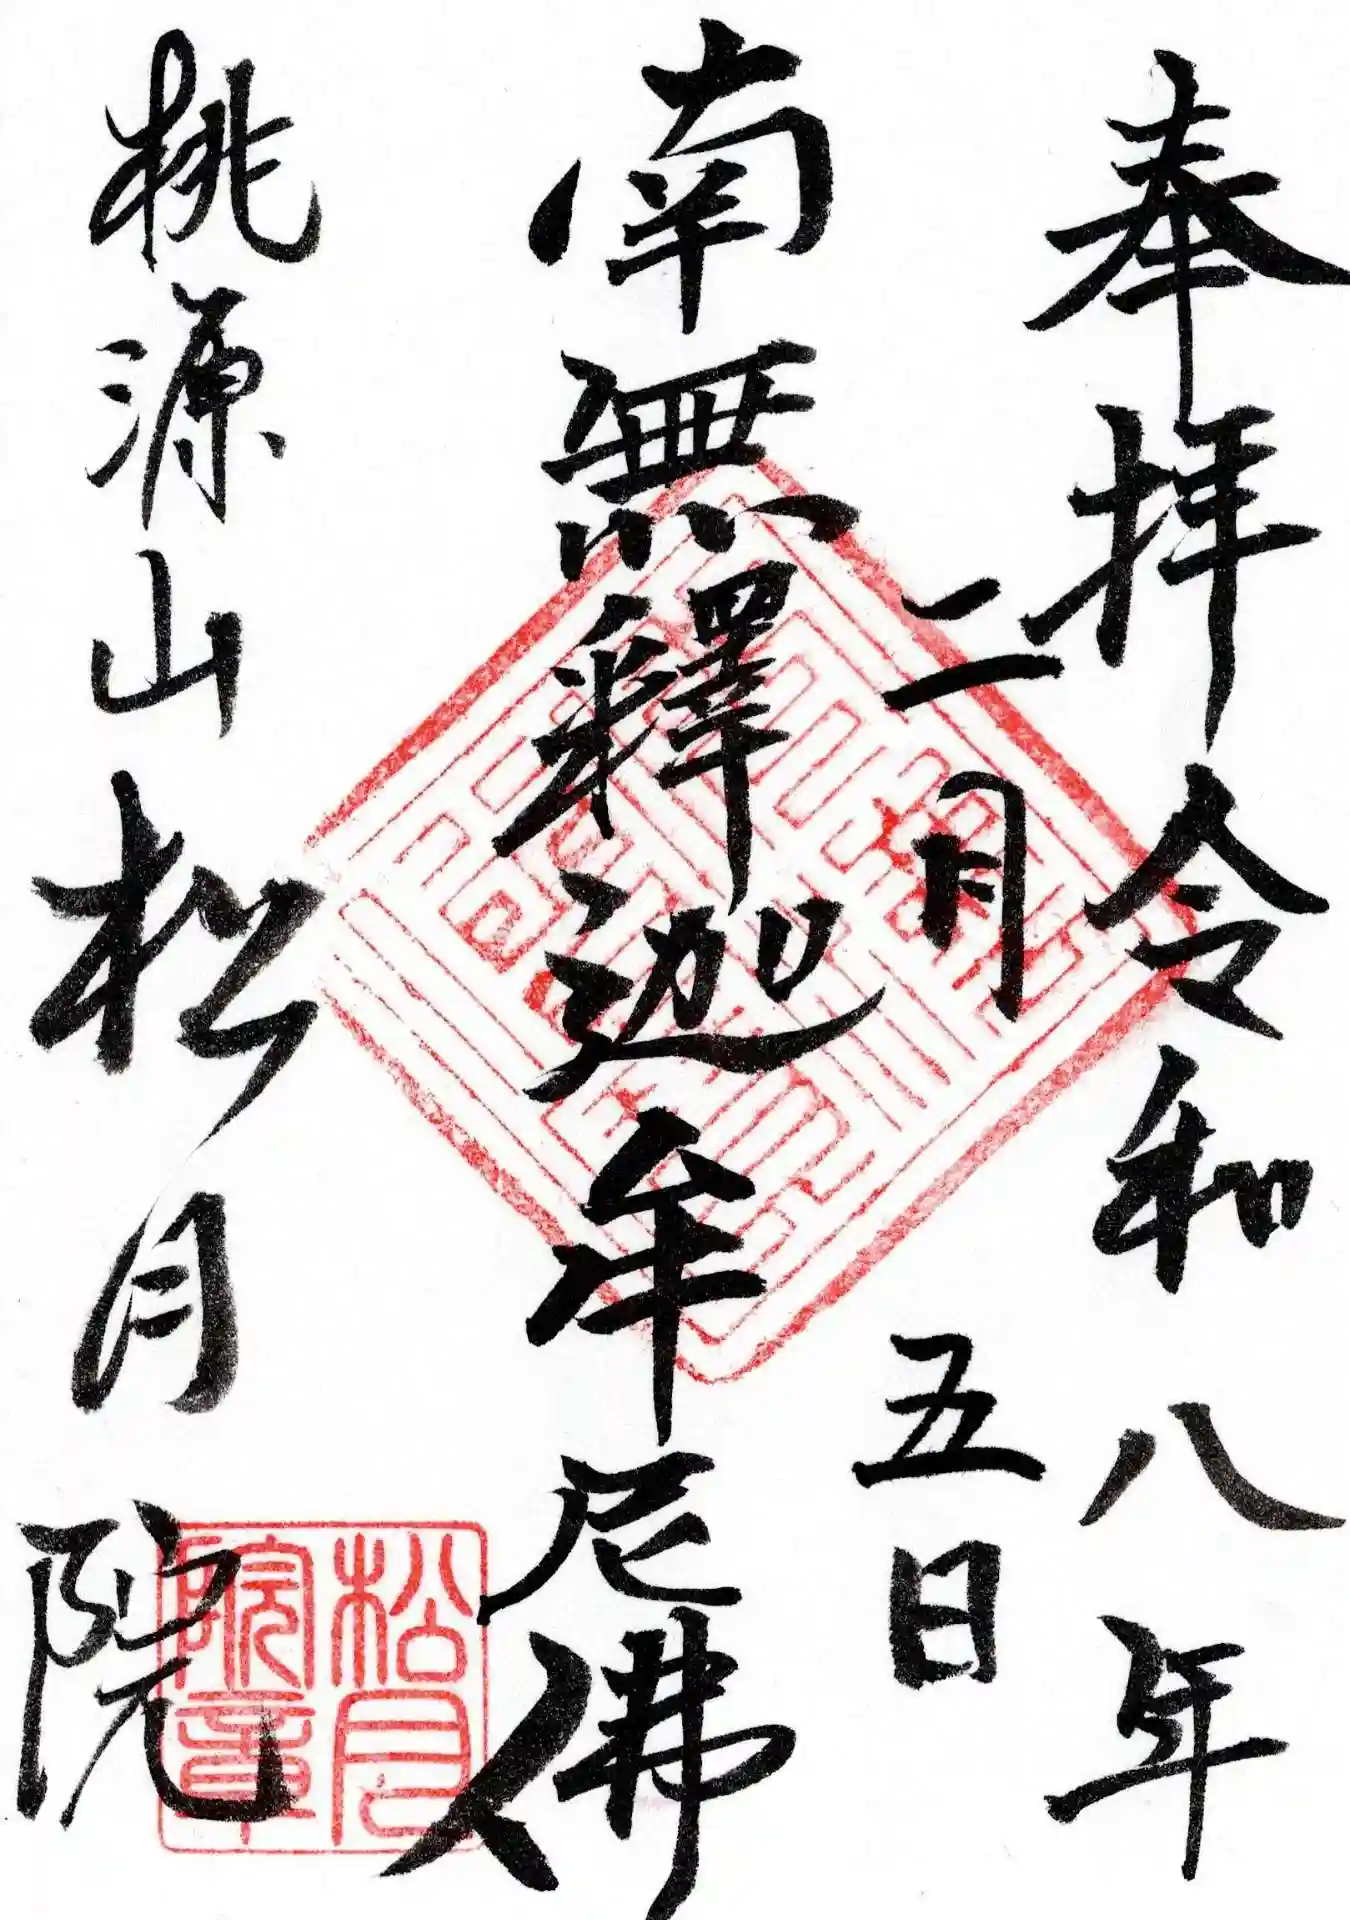 奉拝 令和八年
二月五日
南無釋迦牟尼佛
桃源山 松月院
松月院章